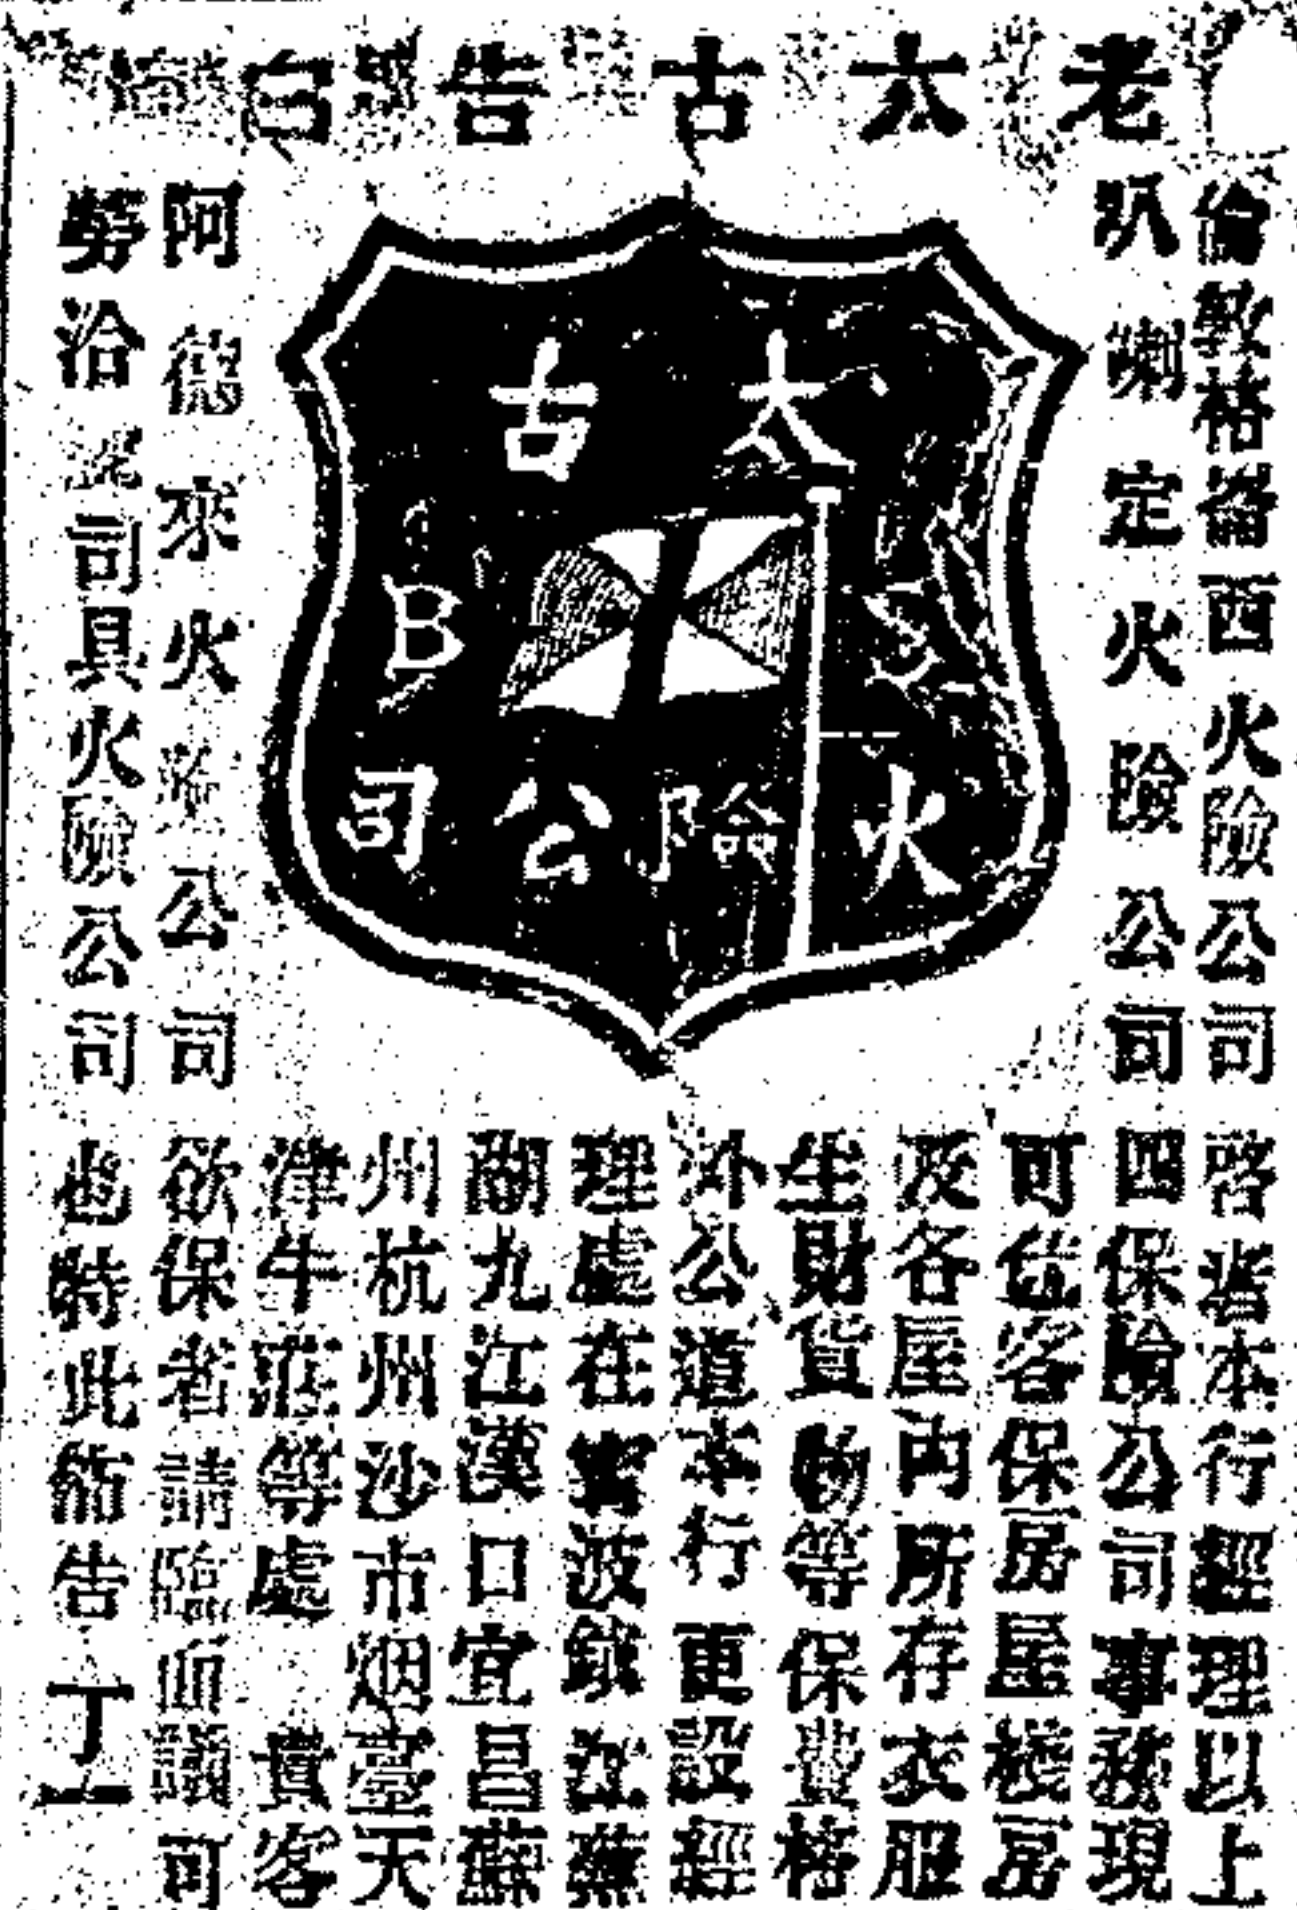 老太古告白
倫敦格崙西火險公司
叭喇定火險公司
太古
B S
火險公司
阿德來火險公司
勞洽 司具火險公司
啓者本行經理以上
四保險公司事務現
可估客保房屋棧房
及各屋內所存衣服
生財貨物等保費格
外公道本行更設經
理處在寗波鎮江蕪
湖九江漢口宜昌蘇
州杭州沙市烟臺天
津牛莊等處 貴客
欲保者請臨面議可
也特此佈告 丁